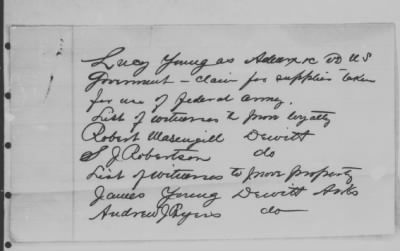 Lucy Young as Admx vs U S
Government - claim for supplies taken
for use of federal army.
List of witnesses to prove loyalty
Robert Masengill Dewitt
S J Robertson do
List of witnesses to prove property
James Young Dewitt Arks
Andrew J do